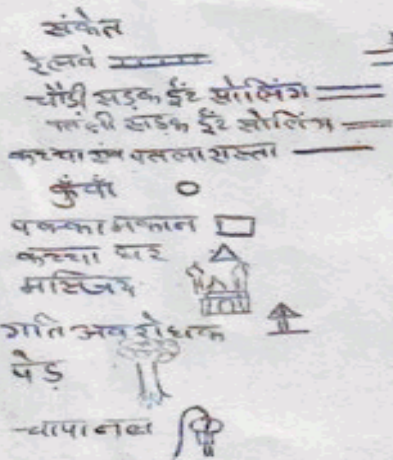 संकेत
रेलवे
चौड़ी सड़क ईंट सोलिंग
पतली सड़क ईंट सोलिंग
कच्चा एंव पतला रास्ता
कुँवाँ
पक्का मकान
कच्चा घर
मस्जिद
गति अवरोधक
पेड़
चापानल